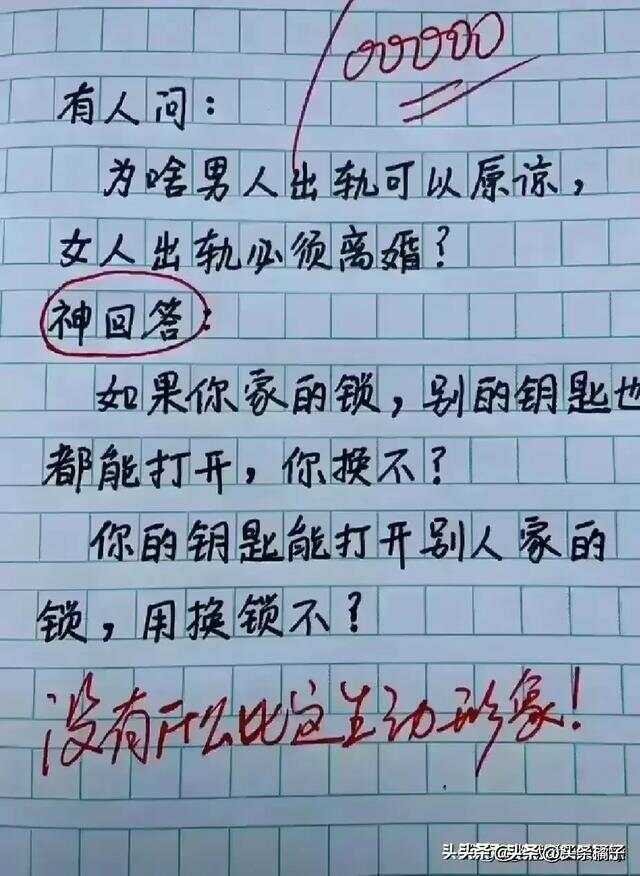 有人问：
为啥男人出轨可以原谅，
女人出轨必须离婚？
神回答：
如果你家的锁，别的钥匙也
都能打开，你换不？
你的钥匙能打开别人家的
锁，用换锁不？
没有什么比这生动形象！
头条